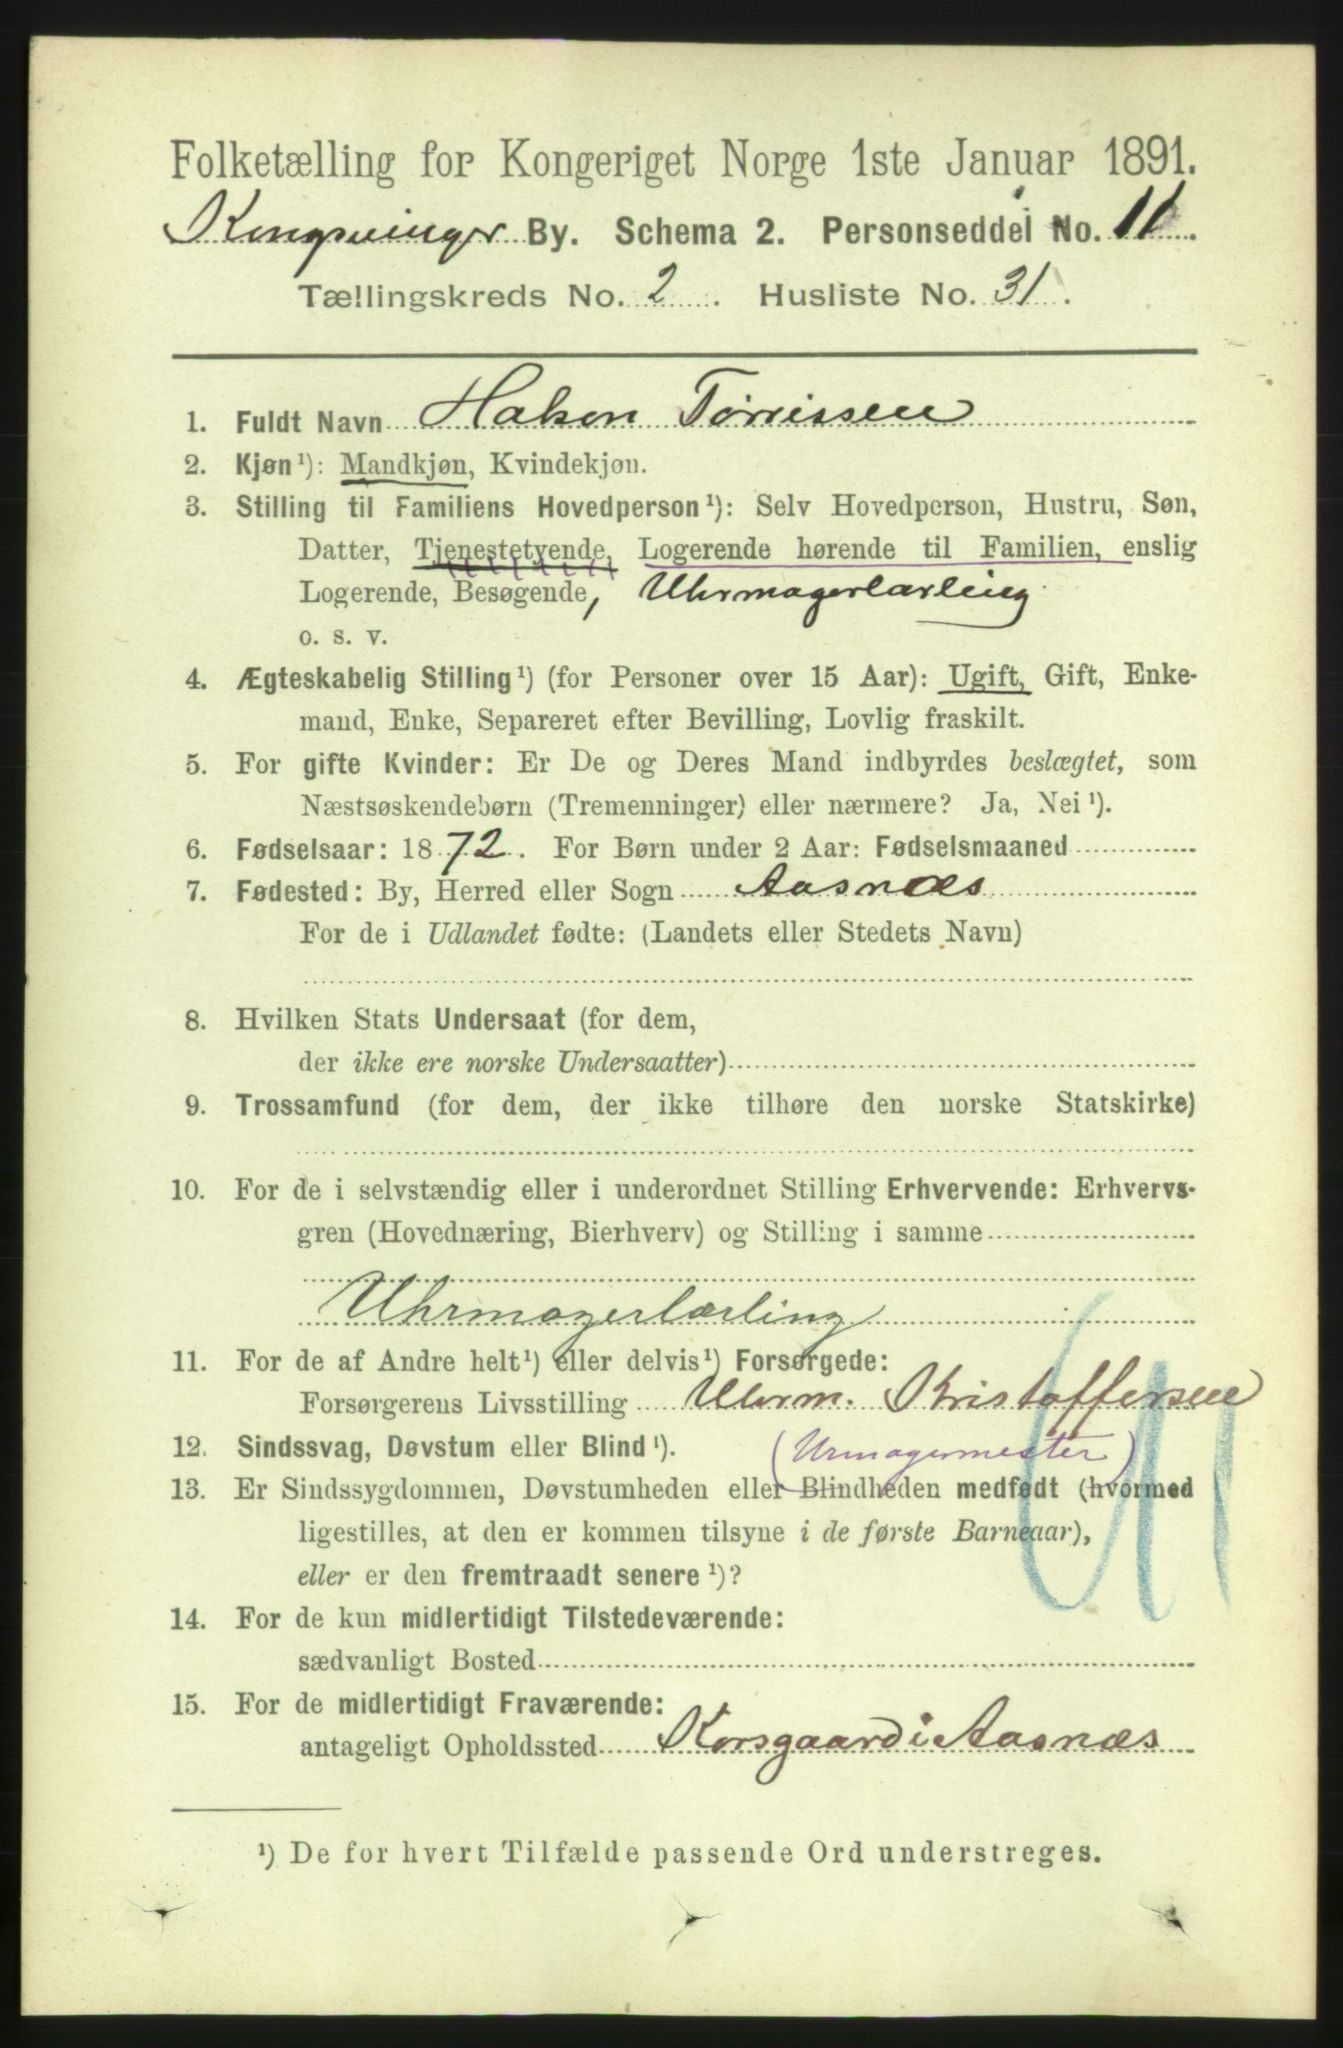 Folketælling for Kongeriget Norge 1ste Januar 1891.
Kongsvinger By. Schema 2. Personseddel No. 11.
Tællingskreds No. 2. Husliste No. 31.
1. Fuldt Navn Hakon Tørrissen
2. Kjøn¹): Mandkjøn, Kvindekjøn.
3. Stilling til Familiens Hovedperson¹): Selv Hovedperson, Hustru, Søn,
Datter, Tjenestetyende, Logerende hørende til Familien, enslig
Logerende, Besøgende, Uhrmagerlærling
o. s. v.
4. Ægteskabelig Stilling¹) (for Personer over 15 Aar): Ugift, Gift, Enke-
mand, Enke, Separeret efter Bevilling, Lovlig fraskilt.
5. For gifte Kvinder: Er De og Deres Mand indbyrdes beslægtet, som
Næstsøskendebørn (Tremenninger) eller nærmere? Ja, Nei¹).
6. Fødselsaar: 1872. For Børn under 2 Aar: Fødselsmaaned
7. Fødested: By, Herred eller Sogn Aasnæs
For de i Udlandet fødte: (Landets eller Stedets Navn)
8. Hvilken Stats Undersaat (for dem,
der ikke ere norske Undersaatter)
9. Trossamfund (for dem, der ikke tilhøre den norske Statskirke)
10. For de i selvstændig eller i underordnet Stilling Erhvervende: Erhvervs-
gren (Hovednæring, Bierhverv) og Stilling i samme
Uhrmagerlærling
11. For de af Andre helt¹) eller delvis¹) Forsørgede:
Forsørgerens Livsstilling Uhrm. Kristoffersen
12. Sindssvag, Døvstum eller Blind¹). (Urmagermester)
13. Er Sindssygdommen, Døvstumheden eller Blindheden medfødt (hvormed
ligestilles, at den er kommen tilsyne i de første Barneaar),
eller er den fremtraadt senere¹)?
14. For de kun midlertidigt Tilstedeværende:
sædvanligt Bosted
15. For de midlertidigt Fraværende:
antageligt Opholdssted Korsgaard i Aasnæs
¹) De for hvert Tilfælde passende Ord understreges.